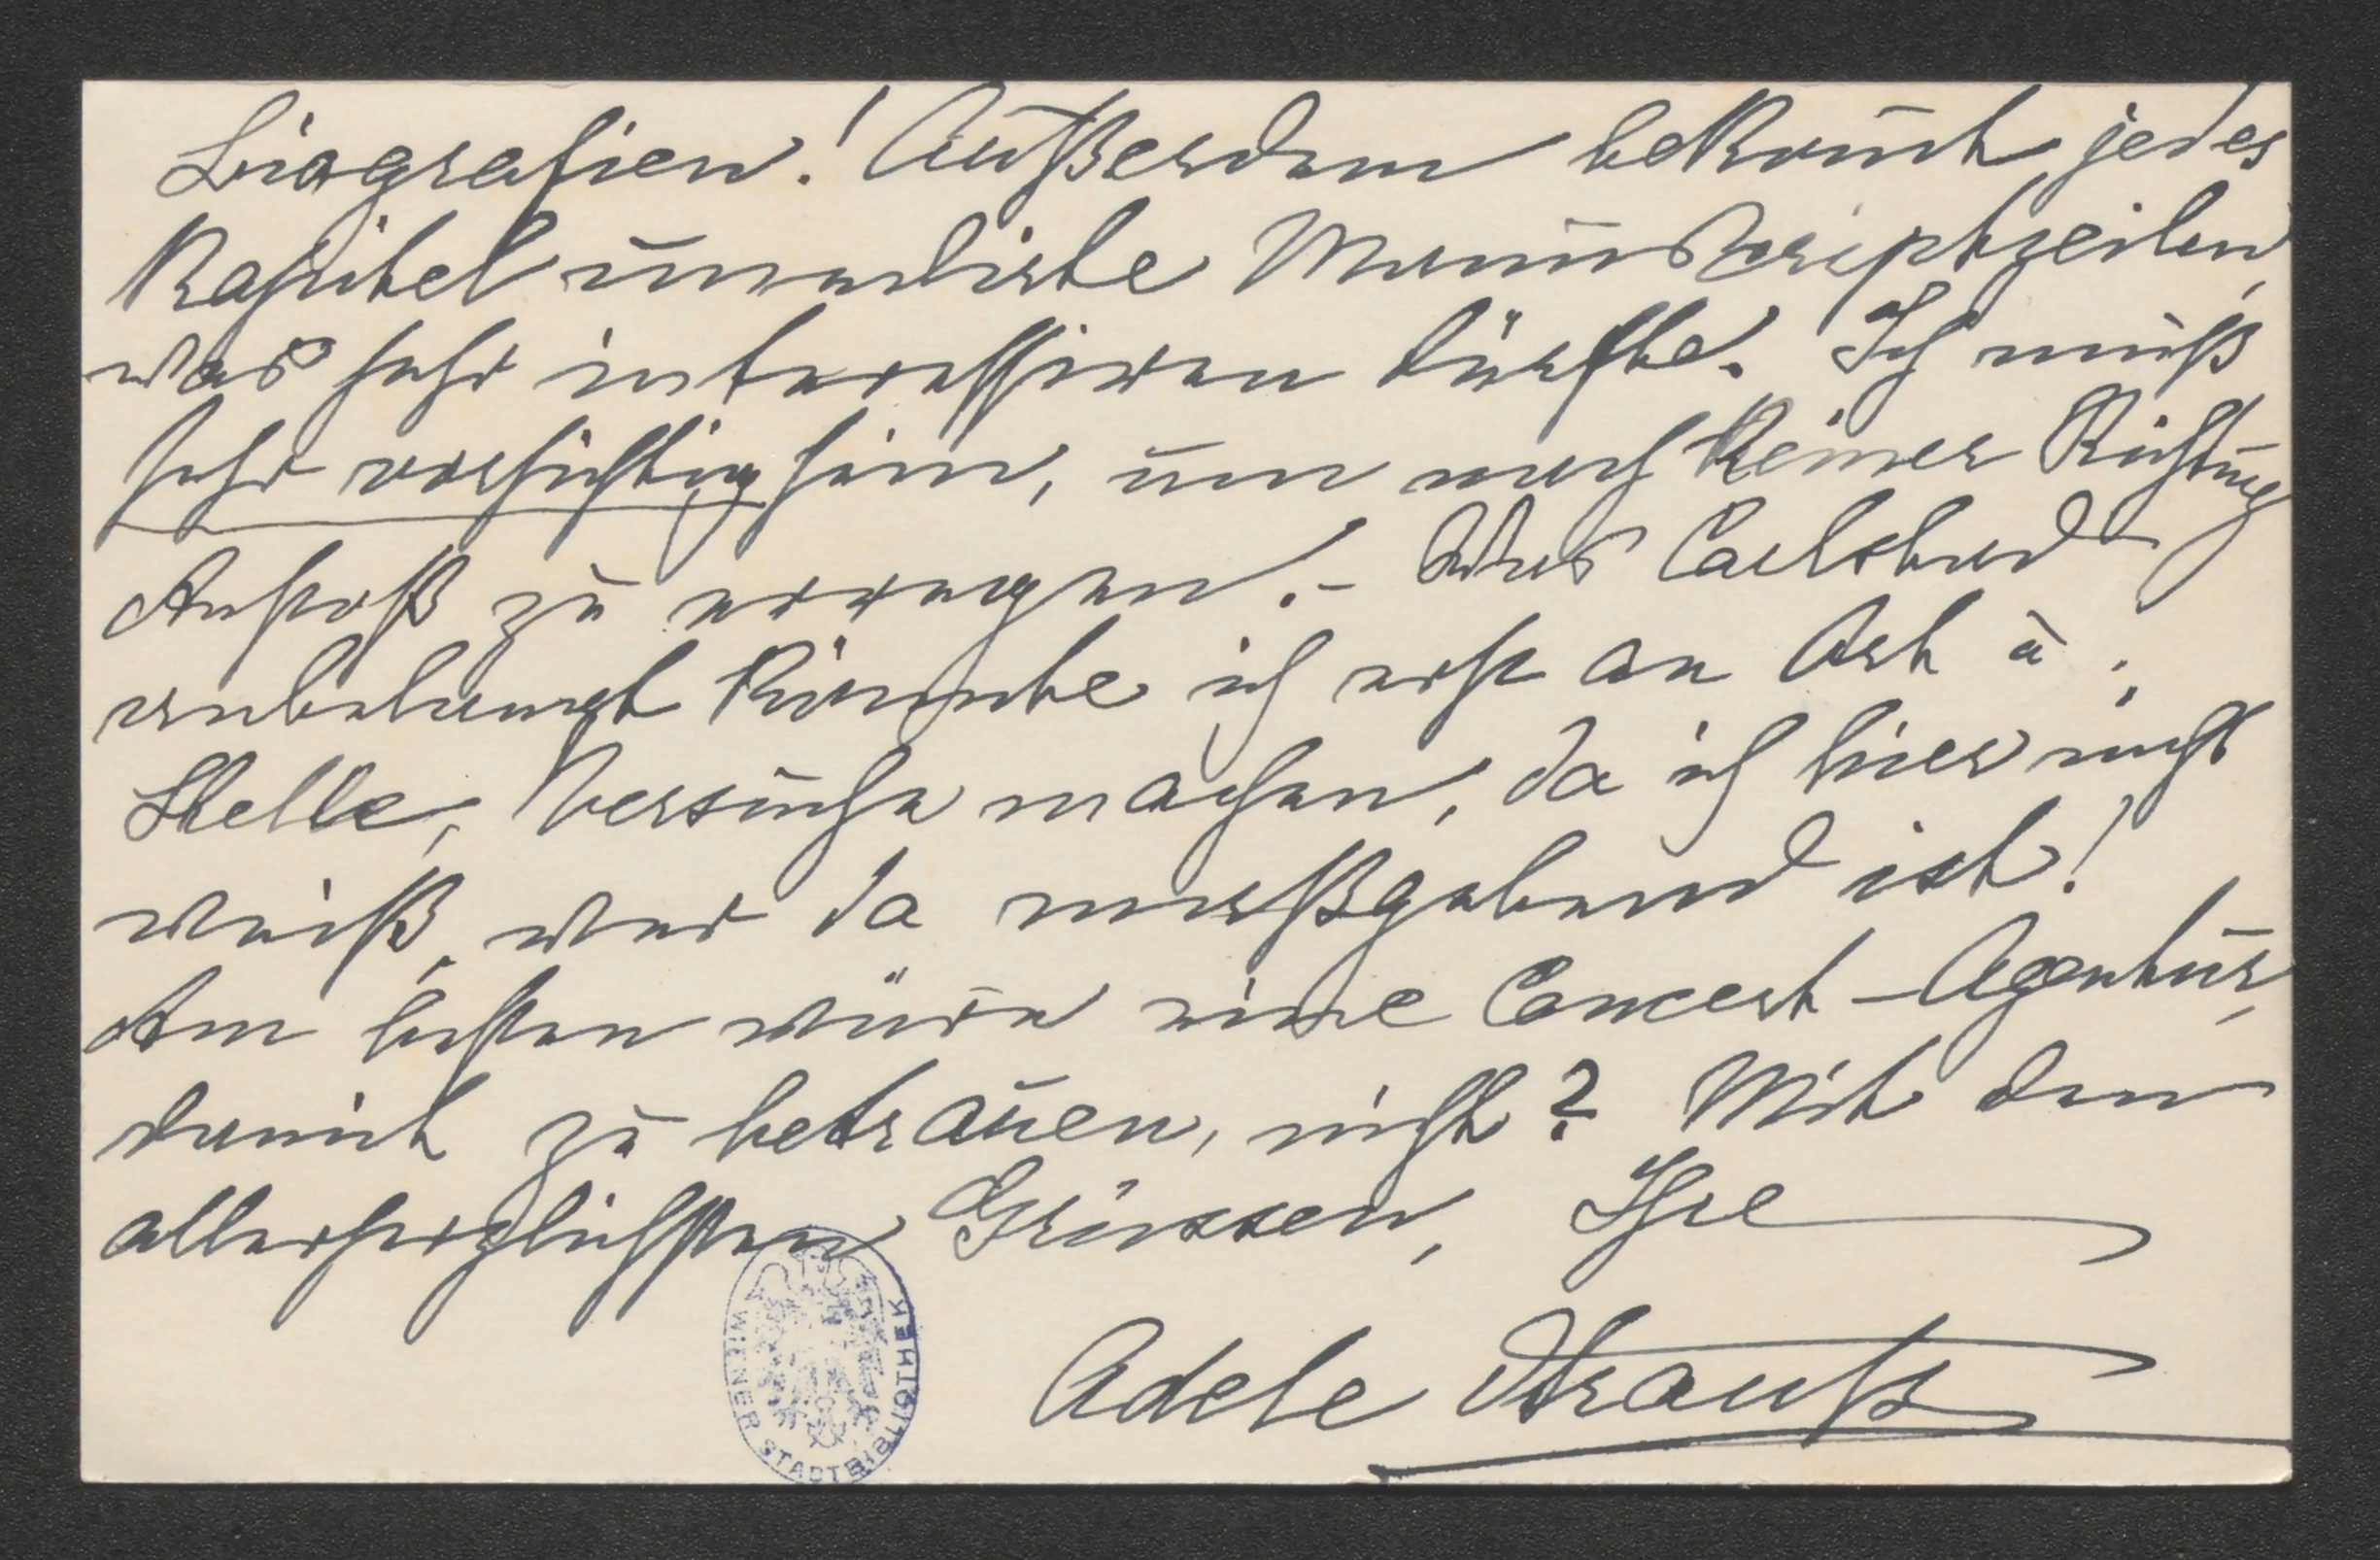 Biografien! Außerdem bekömt jedes
Kapitel unedirte Manuscriptzeilen,
was sehr interessiren dürfte. Ich muß
sehr vorsichtig sein, um nach keiner Richtung
Anstoß zu erregen! – Was Carlsbad
anbelangt könnte ich erst an Ort u.
Stelle, Versuche machen, da ich hier nicht
weiß, wer da maßgebend ist!
Am besten wäre eine Concert-Agentur,
damit zu betrauen, nicht? Mit den
allerherzlichsten Grüssen, Ihre
Adele Strauß
WIENER STADTBIBLIOTHEK